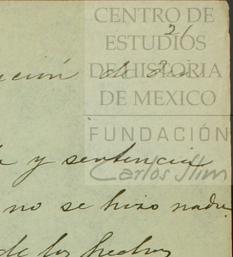 CENTRO DE
ESTUDIOS
21
DE HISTORIA
DE MEXICO
FUNDACIÓN
Carlos Slim
de
y sentencia
no se hizo nada
de los hechos